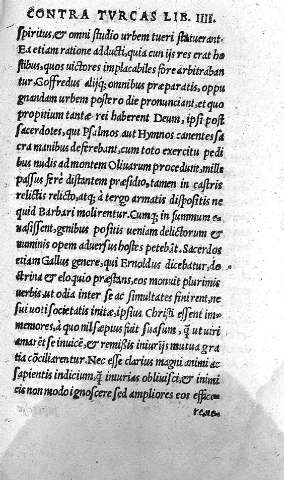 CONTRA TVRCAS LIB. IIII.
spiritus, & omni studio urbem tueri statuerant.
Ea etiam ratione adducti, quia cum ijs res erat ho
stibus, quos uictores implacabiles fore arbitraban
tur. Goffredus alijq; omnibus præparatis, oppu
gnandam urbem postero die pronunciant, et quo
propitium tantæ rei haberent Deum, ipsi post
sacerdotes, qui Psalmos aut Hymnos canentes sa
cra manibus deferebant, cum toto exercitu pedi
bus nudis ad montem Oliuarum procedunt, mille
passus ferè distantem præsidio, tamen in castris
relictis relicto, atq; à tergo armatis dispositis ne
quid Barbari molirentur. Cumq; in summum e
uasissent, genibus positis ueniam delictorum &
numinis opem aduersus hostes petebāt. Sacerdos
etiam Gallus genere, qui Ernoldus dicebatur, do
ctrina & eloquio præstans, eos monuit plurimis
uerbis ut odia inter se ac simultates finirent, ne
sui uoti societatis initæ, ipsius Christi essent im
memores, à quo nil sæpius fiat suasum, q̃ ut uiri
amarēt se inuicē, & remissis iniurijs mutua gra
tia cōciliarentur. Nec esse clarius magni animi ac
sapientis indicium, q̃ iniurias obliuisci, & inimi
cis non modo ignoscere sed ampliores eos effice-